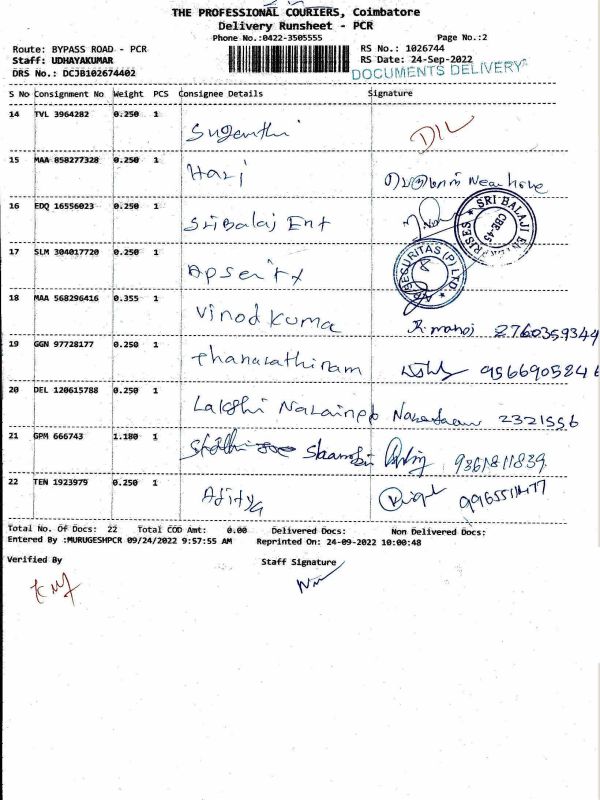 THE PROFESSIONAL COURIERS, Coimbatore
Delivery Runsheet - PCR
Phone No.:0422-3505555 Page No.:2
Route: BYPASS ROAD - PCR RS No.: 1026744
Staff: UDHAYAKUMAR RS Date: 24-Sep-2022
DRS No.: DCJB102674402 DOCUMENTS DELIVERY
S No Consignment No Weight PCS Consignee Details Signature
14 TVL 3964282 0.250 1 Suganthi D/L
15 MAA 858277328 0.250 1 Hari
16 EDQ 16556023 0.250 1 Sri Balaj Ent
SRI BALAJI ENTERPRISES CBE-45
17 SLM 304017720 0.250 1
AP SECURITAS (P) LTD.
18 MAA 568296416 0.355 1 Vinod Kuma R.manoj 2760359344
19 GGN 97728177 0.250 1 thanarathinam 956690584
20 DEL 120615788 0.250 1 2321556
21 GPM 666743 1.180 1 9361811839
22 TEN 1923979 0.250 1 Aditya
Total No. Of Docs: 22 Total COD Amt: 0.00 Delivered Docs: Non Delivered Docs:
Entered By :MURUGESHPCR 09/24/2022 9:57:55 AM Reprinted On: 24-09-2022 10:00:48
Verified By Staff Signature